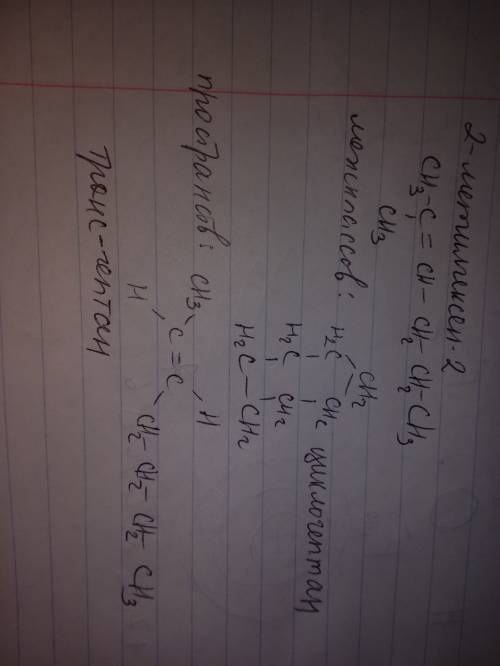 2-метилгексен-2
CH3-C=CH-CH2-CH2-CH3
CH3
межклассов:
CH2
H2C CH2
H2C CH2 циклогептан
H2C-CH2
пространств: CH3 H
C=C
H CH2-CH2-CH2-CH3
Транс-гептан